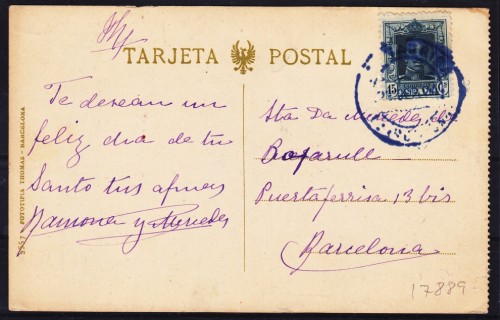 TARJETA POSTAL
Te desean un
feliz dia de tu
Santo tus afmas
Ramona y Mercedes
Sta Da Mercedes de
Bofarull
Puertaferrisa 13 bis
Barcelona
FOTOTIPIA THOMAS - BARCELONA
15 ESPAÑA Cs
17889